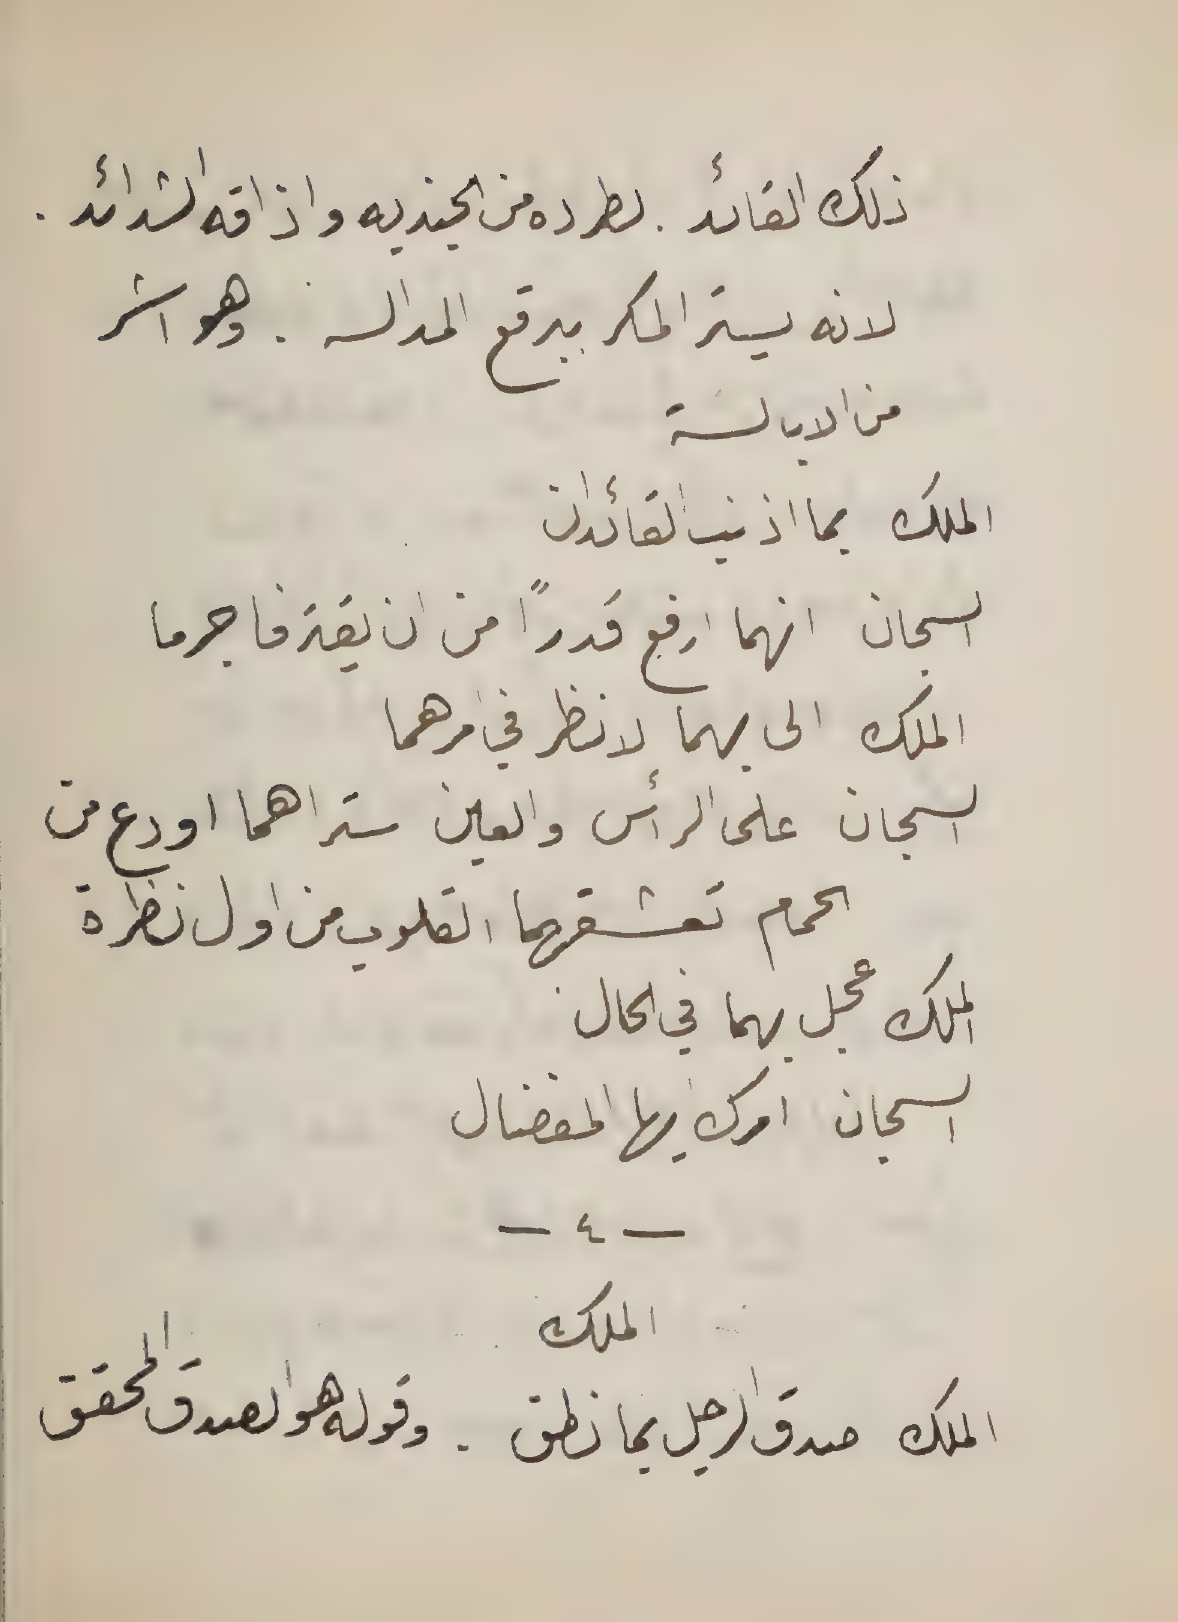 ذلك القائد . لطرده من الجنديه واذاقه الشدائد .
لانه يستر المكر ببرقع المدالسه . وهو اشر
من الابالسة
الملك بما اذنب القائدان
السجان انهما ارفع قدرًا من ان يقترفا جرما
الملك الى بهما لانظر في امرهما
السجان على الرأس والعين ستراهما اودع من
الحمام تعشقهما القلوب من اول نظرة
الملك عجل بهما في الحال
السجان امرك ايها المفضال
— ٤ —
الملك
الملك صدق الرجل بما نطق . وقوله هو الصدق المحقق